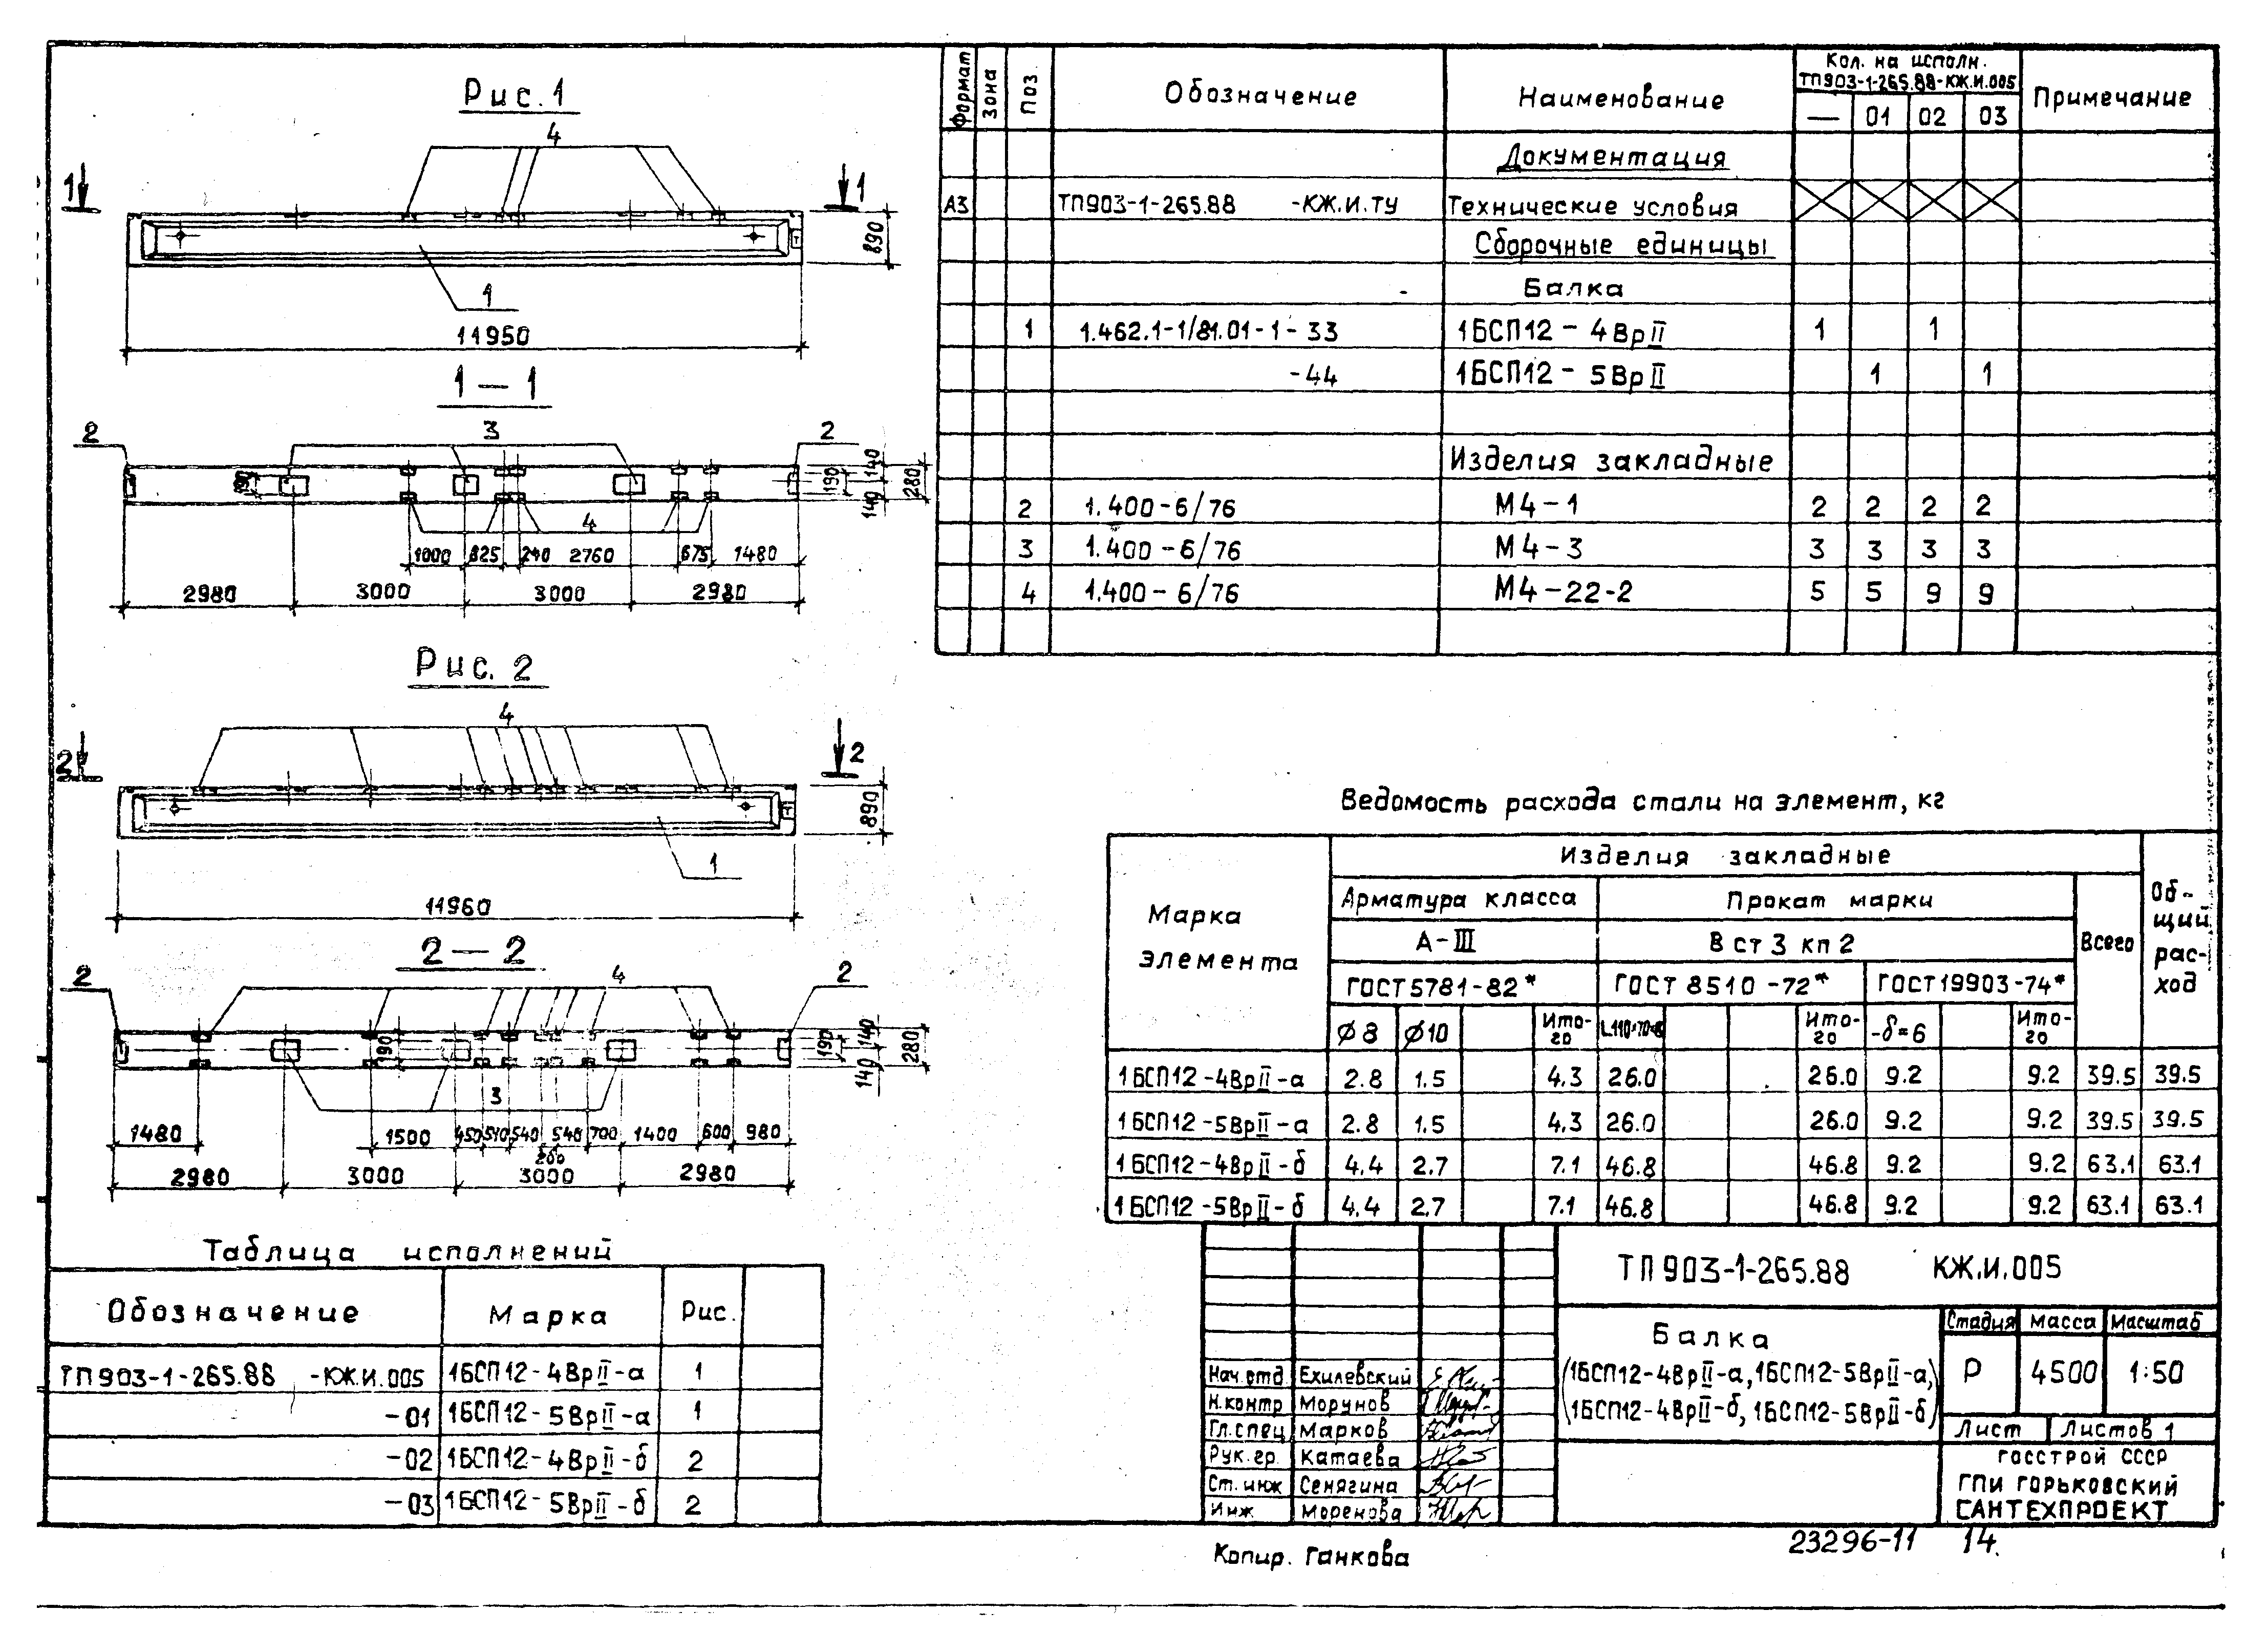 Рис. 1
4
1 1
890
1
11950
1 — 1
2 3 2
190 190 140 140 280
4
1000 825 240 2760 675 1480
2980 3000 3000 2980
Рис. 2
4
2 2
890
1
11960
2 — 2
2 4 2
190 190 140 140 280
3
1480 1500 450 510 540 540 700 1400 600 980
200
2980 3000 3000 2980
Таблица исполнений
Обозначение Марка Рис.
ТП903-1-265.88 -КЖ.И.005 1БСП12-4ВрII-а 1
-01 1БСП12-5ВрII-а 1
-02 1БСП12-4ВрII-б 2
-03 1БСП12-5ВрII-б 2
Формат Зона Поз Обозначение Наименование Кол. на исполн. Примечание
ТП903-1-265.88-КЖ.И.005
— 01 02 03
Документация
А3 ТП903-1-265.88 -КЖ.И.ТУ Технические условия
Сборочные единицы
Балка
1 1.462.1-1/81.01-1-33 1БСП12-4ВрII 1 1
-44 1БСП12-5ВрII 1 1
Изделия закладные
2 1.400-6/76 М4-1 2 2 2 2
3 1.400-6/76 М4-3 3 3 3 3
4 1.400-6/76 М4-22-2 5 5 9 9
Ведомость расхода стали на элемент, кг
Марка элемента Изделия закладные Общий расход
Арматура класса Прокат марки Всего
А-III В ст 3 кп 2
ГОСТ5781-82* ГОСТ 8510-72* ГОСТ19903-74*
Ø8 Ø10 Итого L110×70×8 Итого -δ=6 Итого
1БСП12-4ВрII-а 2.8 1.5 4.3 26.0 26.0 9.2 9.2 39.5 39.5
1БСП12-5ВрII-а 2.8 1.5 4.3 26.0 26.0 9.2 9.2 39.5 39.5
1БСП12-4ВрII-б 4.4 2.7 7.1 46.8 46.8 9.2 9.2 63.1 63.1
1БСП12-5ВрII-б 4.4 2.7 7.1 46.8 46.8 9.2 9.2 63.1 63.1
ТП903-1-265.88 КЖ.И.005
Балка
(1БСП12-4ВрII-а, 1БСП12-5ВрII-а,)
(1БСП12-4ВрII-б, 1БСП12-5ВрII-б)
Стадия Масса Масштаб
Р 4500 1:50
Лист Листов 1
Госстрой СССР
ГПИ Горьковский
Сантехпроект
Нач.отд Ехилевский
Н.контр Морунов
Гл.спец Марков
Рук.гр. Катаева
Ст.инж Сенягина
Инж Моренова
Копир. Ганкова
23296-11 14.